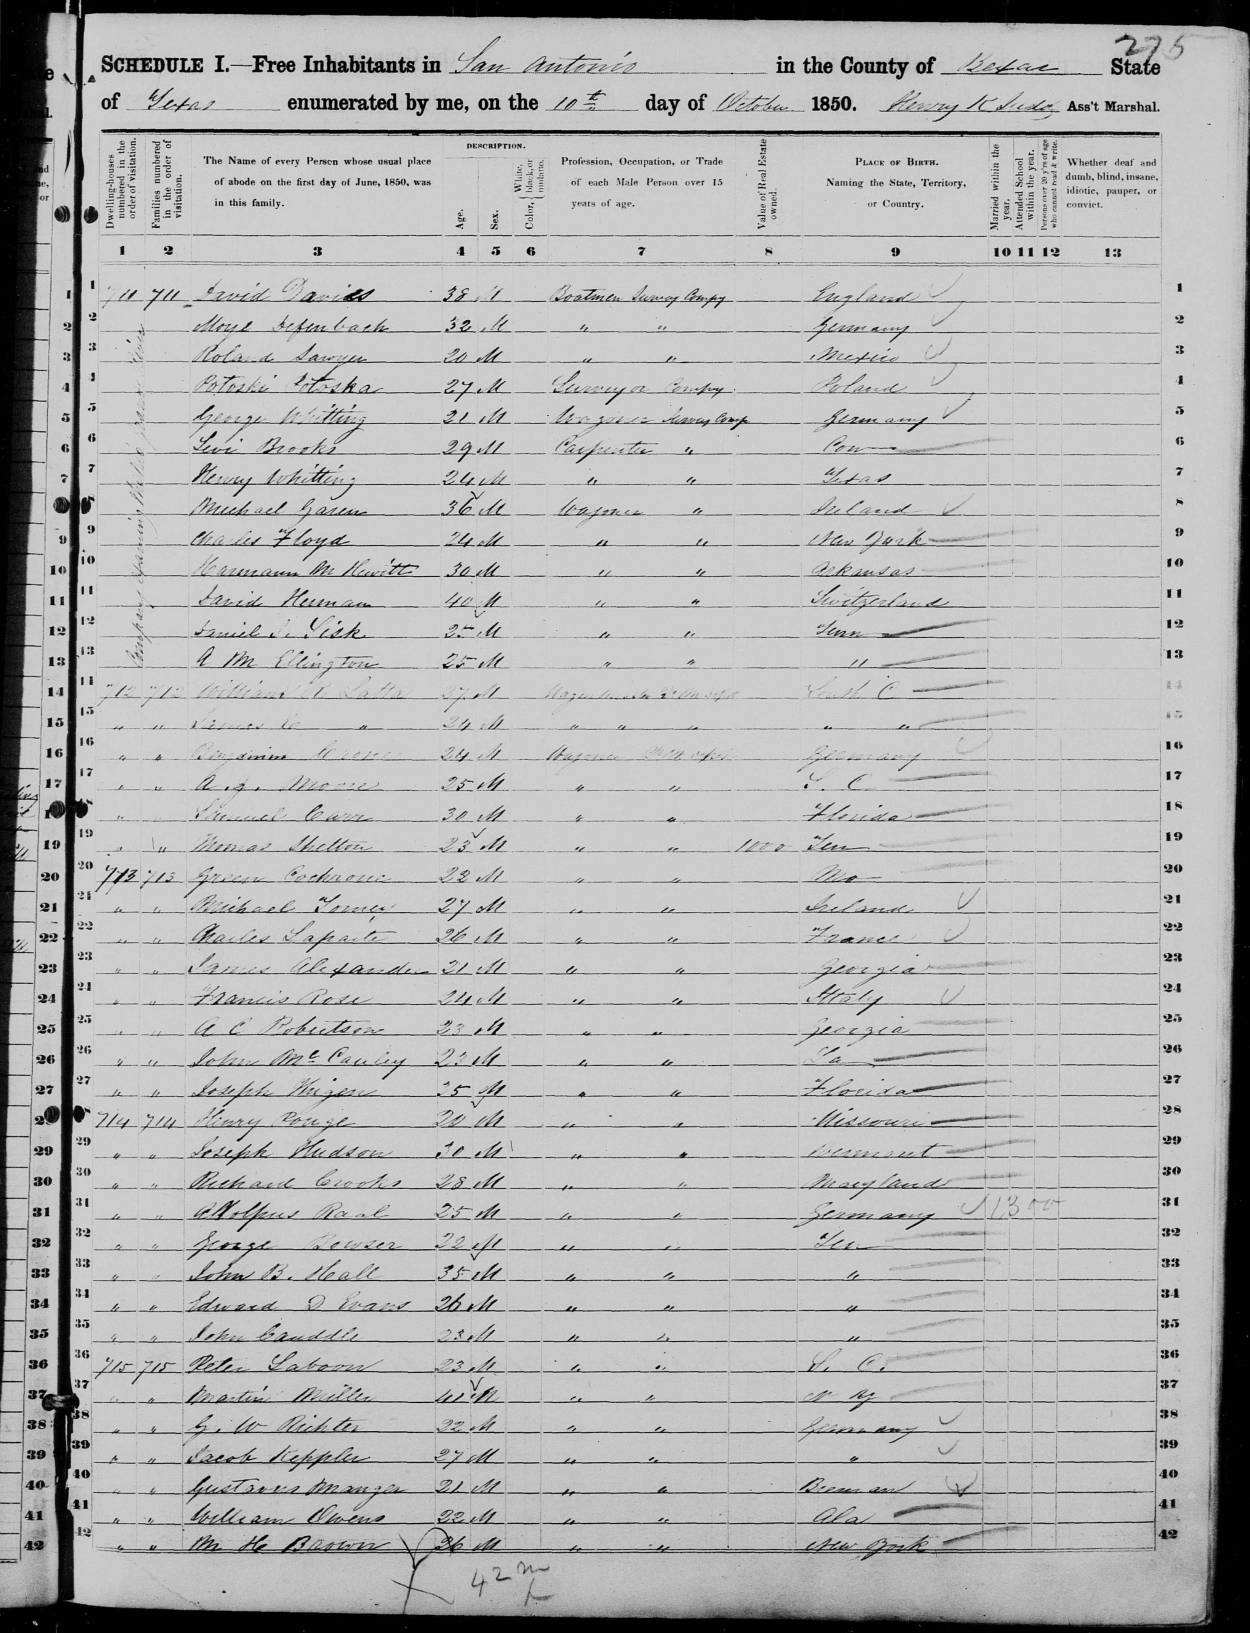 275
SCHEDULE I.—Free Inhabitants in San Antonio in the County of Bexar State
of Texas enumerated by me, on the 10th day of October 1850. Henry K Ass't Marshal.
Dwelling-houses numbered in the order of visitation.
Families numbered in the order of visitation.
The Name of every Person whose usual place of abode on the first day of June, 1850, was in this family.
DESCRIPTION.
Age.
Sex.
Color, { White, black, or mulatto.
Profession, Occupation, or Trade of each Male Person over 15 years of age.
Value of Real Estate owned.
PLACE OF BIRTH. Naming the State, Territory, or Country.
Married within the year.
Attended School within the year.
Persons over 20 y'rs of age who cannot read & write.
Whether deaf and dumb, blind, insane, idiotic, pauper, or convict.
1 2 3 4 5 6 7 8 9 10 11 12 13
1 711 711 David Davies 38 M Boatmen Survey Compy England 1
2 Moye Defenbach 32 M " " Germany 2
3 Roland Sawyer 20 M " " Mexico 3
4 Potoski Potoska 27 M Surveyor Compy. Poland 4
5 George Whitting 21 M Wagoner Survey Comp Germany 5
6 Levi Brooks 29 M Carpenter " Conn 6
7 Henry Whitting 24 M " " Texas 7
8 Michael Garen 36 M Wagoner " Ireland 8
9 Charles Floyd 24 M " " New York 9
10 Harmann M Hewitt 30 M " " Arkansas 10
11 David Herman 40 M " " Switzerland 11
12 Daniel S. Sisk 25 M " " Tenn 12
13 A M Ellington 25 M " " " 13
14 712 712 William Latta 27 M South C 14
15 " " James " 24 M " " " " " 15
16 " " Benjamin 24 M Wagoner Germany 16
17 " " A. J. Moore 25 M " " S. C. 17
18 " " Samuel Carr 30 M " " Florida 18
19 " " Thomas Shelton 23 M " " 1000 Ten 19
20 713 713 Green Cochrane 22 M " " Mo 20
21 " " Michael Torney 27 M " " Ireland 21
22 " " Charles Laparte 26 M " " France 22
23 " " James Alexander 21 M " " Georgia 23
24 " " Francis Rose 24 M " " Italy 24
25 " " A C Robertson 23 M " " Georgia 25
26 " " John Mc Cauley 23 M " " La 26
27 " " Joseph 35 M " " Florida 27
28 714 714 Henry Ponge 20 M " " Missouri 28
29 " " Joseph Hudson 30 M " " Vermont 29
30 " " Richard Crooks 28 M " " Maryland 30
31 " " Adolphus Raal 25 M " " Germany 1300 31
32 " " George Bowser 22 M " " Ten 32
33 " " John B. Hall 35 M " " " 33
34 " " Edward D Evans 26 M " " " 34
35 " " John Cauddle 23 M " " " 35
36 715 715 Peter Laboon 23 M " " S. C. 36
37 " " Martin Miller 41 M " " N Y 37
38 " " G. W Richter 22 M " " Germany 38
39 " " Jacob Keppler 27 M " " " 39
40 " " Gustavus Manger 21 M " " Breman 40
41 " " William Owens 22 M " " Ala 41
42 " " M H Brown 26 M " " New York 42
42 m